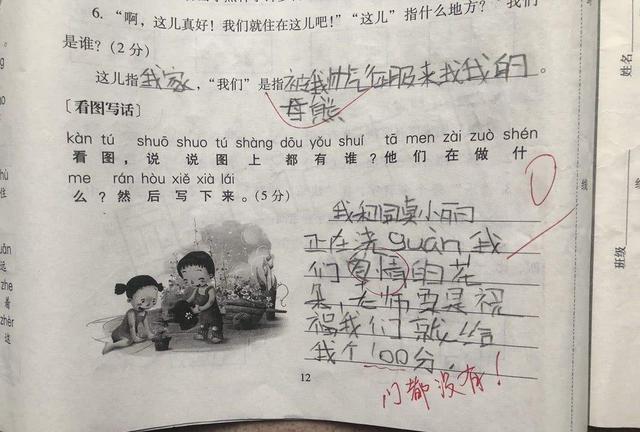 6. “啊，这儿真好！我们就住在这儿吧！”“这儿”指什么地方？“我们”
是谁？(2分)
这儿指我家，“我们”是指被我帅气征服来找我的
母熊。
[看图写话]
kàn tú shuō shuo tú shàng dōu yǒu shuí tā men zài zuò shén
看图，说说图上都有谁？他们在做什
me rán hòu xiě xià lái
么？然后写下来。(5分)
0
我和同桌小丽
正在浇guàn我
们爱情的花
朵，老师要是祝
福我们就给
我个100分。
门都没有！
12
线
姓名
班级